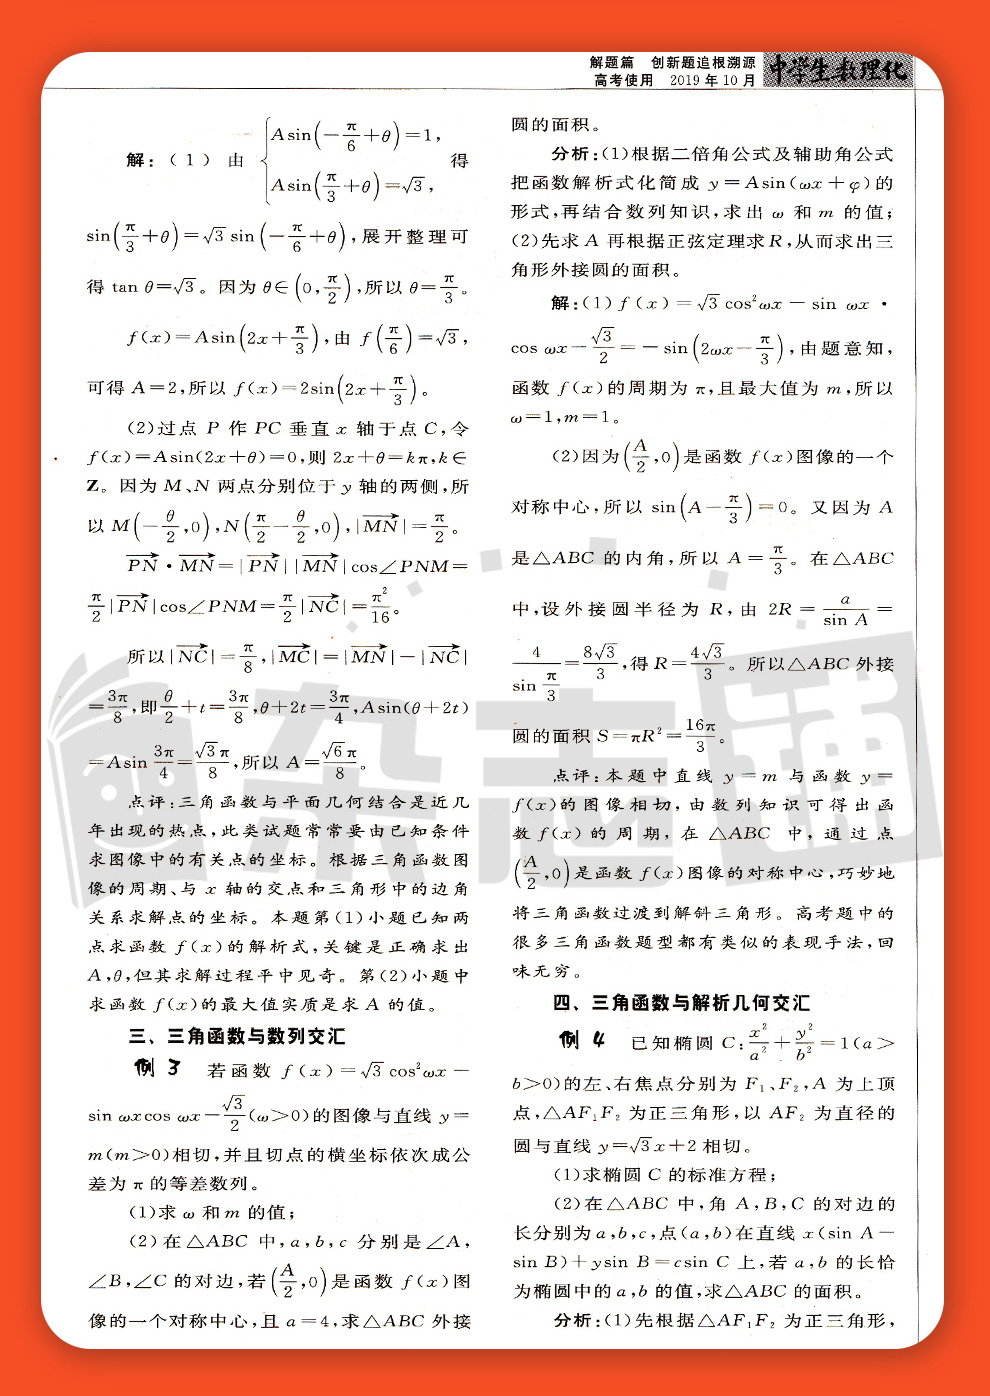 解题篇 创新题追根溯源
高考使用 2019年10月
中学生数理化
解:(1)由{Asin(-π/6+θ)=1, Asin(π/3+θ)=√3, 得
sin(π/3+θ)=√3 sin(-π/6+θ),展开整理可
得 tan θ=√3。因为 θ∈(0,π/2),所以 θ=π/3。
f(x)=Asin(2x+π/3),由 f(π/6)=√3,
可得 A=2,所以 f(x)=2sin(2x+π/3)。
(2)过点 P 作 PC 垂直 x 轴于点 C,令
f(x)=Asin(2x+θ)=0,则 2x+θ=kπ,k∈
Z。因为 M、N 两点分别位于 y 轴的两侧,所
以 M(-θ/2,0),N(π/2-θ/2,0),|MN|=π/2。
PN·MN=|PN||MN|cos∠PNM=
π/2|PN|cos∠PNM=π/2|NC|=π²/16。
所以|NC|=π/8,|MC|=|MN|-|NC|
=3π/8,即θ/2+t=3π/8,θ+2t=3π/4,Asin(θ+2t)
=Asin 3π/4=√3π/8,所以 A=√6π/8。
点评:三角函数与平面几何结合是近几
年出现的热点,此类试题常常要由已知条件
求图像中的有关点的坐标。根据三角函数图
像的周期、与 x 轴的交点和三角形中的边角
关系求解点的坐标。本题第(1)小题已知两
点求函数 f(x)的解析式,关键是正确求出
A,θ,但其求解过程平中见奇。第(2)小题中
求函数 f(x)的最大值实质是求 A 的值。
三、三角函数与数列交汇
例3 若函数 f(x)=√3 cos²ωx-
sin ωxcos ωx-√3/2(ω>0)的图像与直线 y=
m(m>0)相切,并且切点的横坐标依次成公
差为 π 的等差数列。
(1)求 ω 和 m 的值;
(2)在△ABC 中,a,b,c 分别是∠A,
∠B,∠C 的对边,若(A/2,0)是函数 f(x)图
像的一个对称中心,且 a=4,求△ABC 外接
圆的面积。
分析:(1)根据二倍角公式及辅助角公式
把函数解析式化简成 y=Asin(ωx+φ)的
形式,再结合数列知识,求出 ω 和 m 的值;
(2)先求 A 再根据正弦定理求 R,从而求出三
角形外接圆的面积。
解:(1)f(x)=√3 cos²ωx-sin ωx·
cos ωx-√3/2=-sin(2ωx-π/3),由题意知,
函数 f(x)的周期为 π,且最大值为 m,所以
ω=1,m=1。
(2)因为(A/2,0)是函数 f(x)图像的一个
对称中心,所以 sin(A-π/3)=0。又因为 A
是△ABC 的内角,所以 A=π/3。在△ABC
中,设外接圆半径为 R,由 2R=a/sin A=
4/sin π/3=8√3/3,得 R=4√3/3。所以△ABC 外接
圆的面积 S=πR²=16π/3。
点评:本题中直线 y=m 与函数 y=
f(x)的图像相切,由数列知识可得出函
数 f(x)的周期,在△ABC 中,通过点
(A/2,0)是函数 f(x)图像的对称中心,巧妙地
将三角函数过渡到解斜三角形。高考题中的
很多三角函数题型都有类似的表现手法,回
味无穷。
四、三角函数与解析几何交汇
例4 已知椭圆 C:x²/a²+y²/b²=1(a>
b>0)的左、右焦点分别为 F₁、F₂,A 为上顶
点,△AF₁F₂ 为正三角形,以 AF₂ 为直径的
圆与直线 y=√3x+2 相切。
(1)求椭圆 C 的标准方程;
(2)在△ABC 中,角 A,B,C 的对边的
长分别为 a,b,c,点(a,b)在直线 x(sin A-
sin B)+ysin B=csin C 上,若 a,b 的长恰
为椭圆中的 a,b 的值,求△ABC 的面积。
分析:(1)先根据△AF₁F₂ 为正三角形,
杂志铺